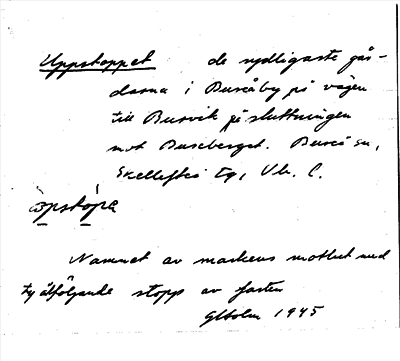 Uppstoppet de sydligaste går-
darna i Bureåby på vägen
till Burvik på sluttningen
mot Bureberget. Bureå sn,
Skellefteå tg, Vb. l.
òpstópe
Namnet av markens motlut med
ty åtföljande stopp av farten
GHolm 1945